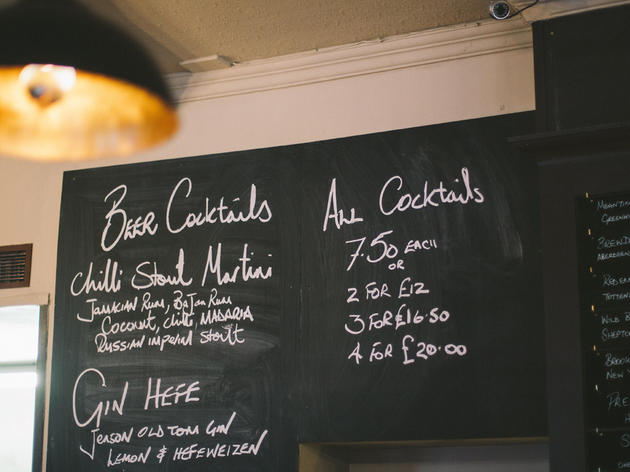 BEER COCKTAILS
Chilli Stout Martini
JAMAICAN RUM, BAJAN RUM
COCONUT, CHILLI, MADARIA
RUSSIAN IMPERIAL STOUT
GIN HEFE
JENSON OLD TOM GIN
LEMON & HEFEWEIZEN
ALL COCKTAILS
7.50 EACH
OR
2 FOR £12
3 FOR £16.50
4 FOR £20.00
MEANTIM
GREENW
BREWD
ABERDEEN
REDEM
TOTTEN
WILD B
SHEPTO
BROOK
NEW Y
PRE